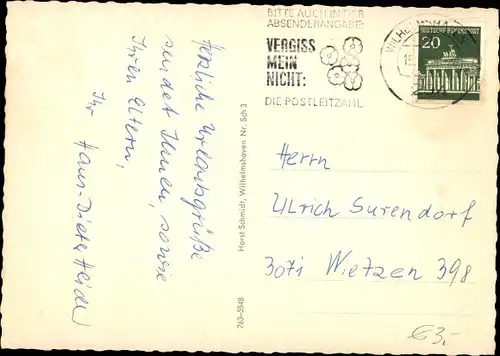 BITTE AUCH IN DER
ABSENDERANGABE:
VERGISS
MEIN
NICHT:
DIE POSTLEITZAHL
DEUTSCHE BUNDESPOST
20
Herzliche Urlaubsgrüße
sendet Ihnen, sowie
Ihren Eltern,
Ihr Hans-Dieter
Horst Schmidt, Wilhelmshaven Nr. Sch 3
763-5548
Herrn
Ulrich Surendorf
3071 Wietzen 398
€3,-